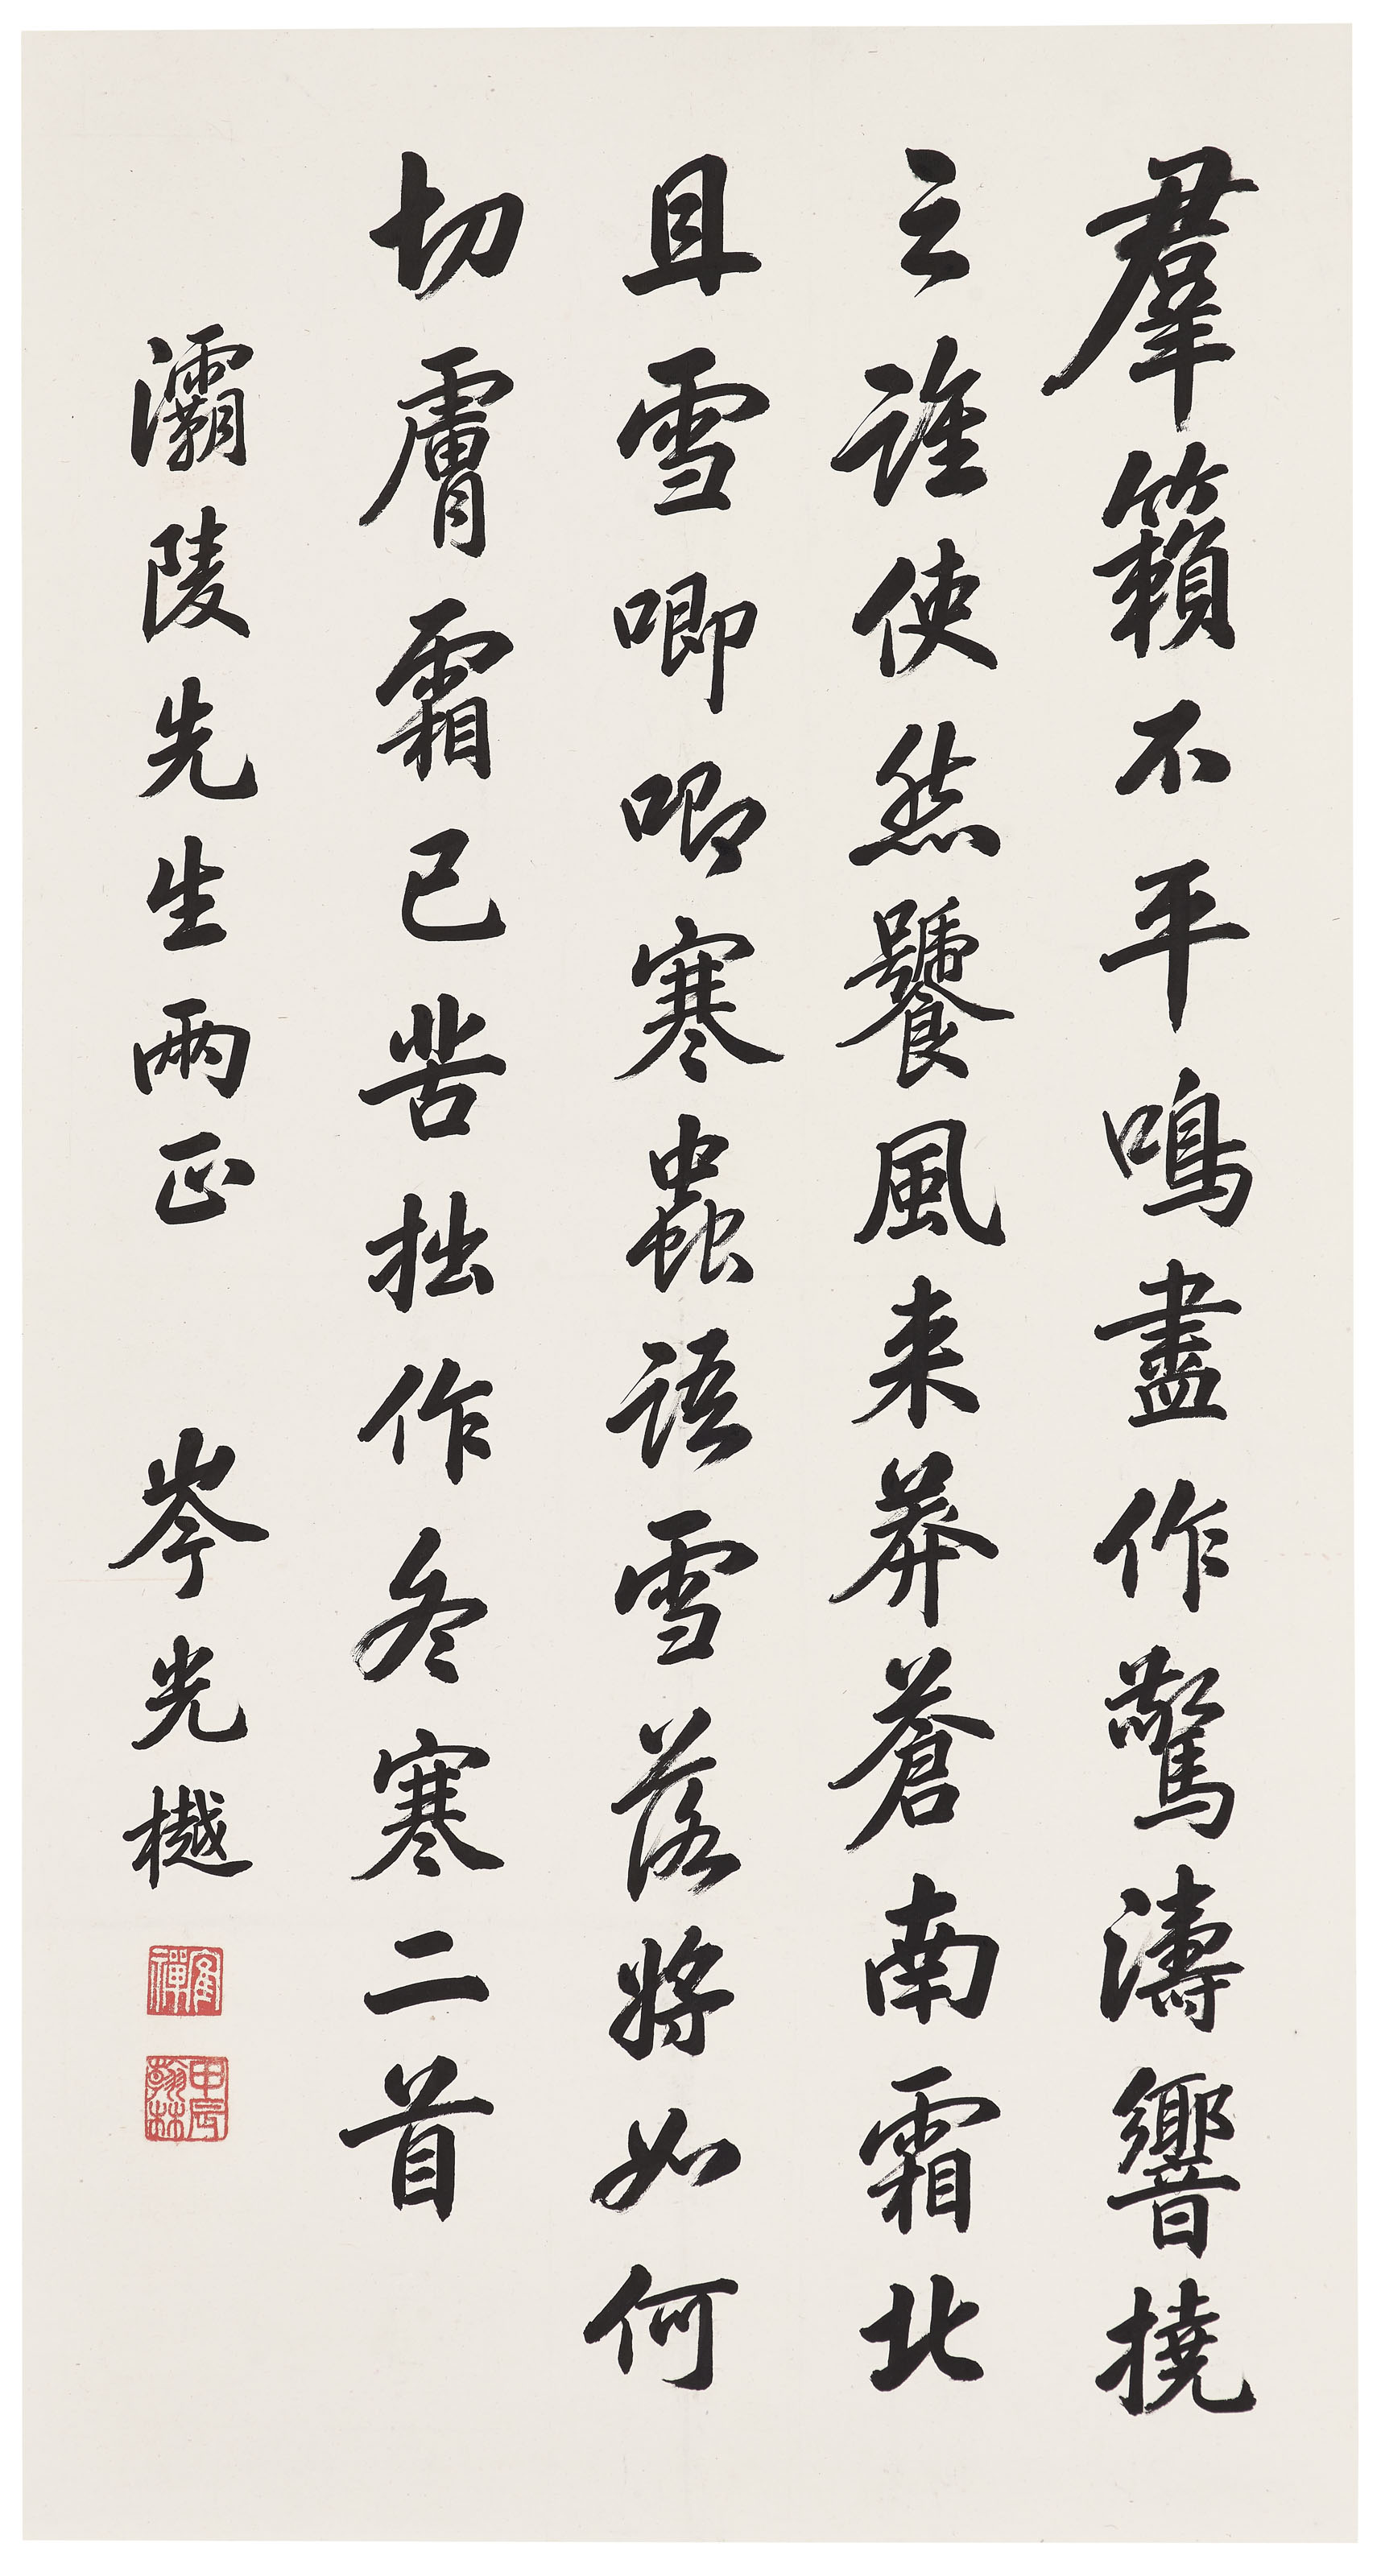 羣籟不平鳴盡作驚濤響撓
之誰使然饕風来莽蒼南霜北
且雪唧唧寒蟲語雪落將如何
切膚霜已苦拙作冬寒二首
灞陵先生兩正 岑光樾
甲辰翰林